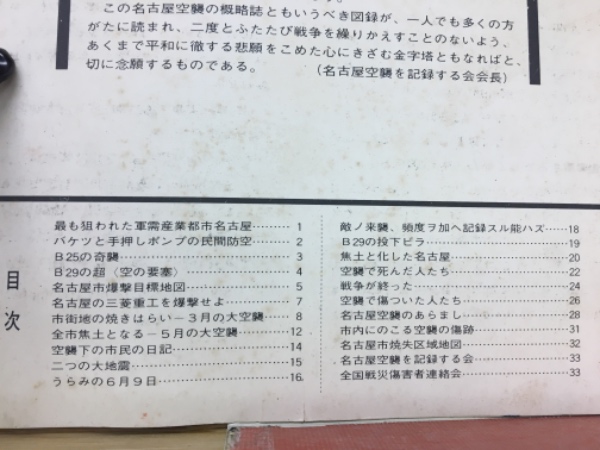 この名古屋空襲の概略誌ともいうべき図録が、一人でも多くの方
がたに読まれ、二度とふたたび戦争を繰りかえすことのないよう、
あくまで平和に徹する悲願をこめた心にきざむ金字塔ともなればと、
切に念願するものである。 (名古屋空襲を記録する会会長)
目次
最も狙われた軍需産業都市名古屋………1
バケツと手押しポンプの民間防空………2
B25の奇襲………3
B29の超〈空の要塞〉………4
名古屋市爆撃目標地図………5
名古屋の三菱重工を爆撃せよ………7
市街地の焼きはらい－3月の大空襲………8
全市焦土となる－5月の大空襲………12
空襲下の市民の日記………14
二つの大地震………15
うらみの6月9日………16
敵ノ来襲、頻度ヲ加ヘ記録スル能ハズ……18
B29の投下ビラ………19
焦土と化した名古屋………20
空襲で死んだ人たち………22
戦争が終った………24
空襲で傷ついた人たち………26
名古屋空襲のあらまし………28
市内にのこる空襲の傷跡………31
名古屋市焼失区域地図………32
名古屋空襲を記録する会………33
全国戦災傷害者連絡会………33